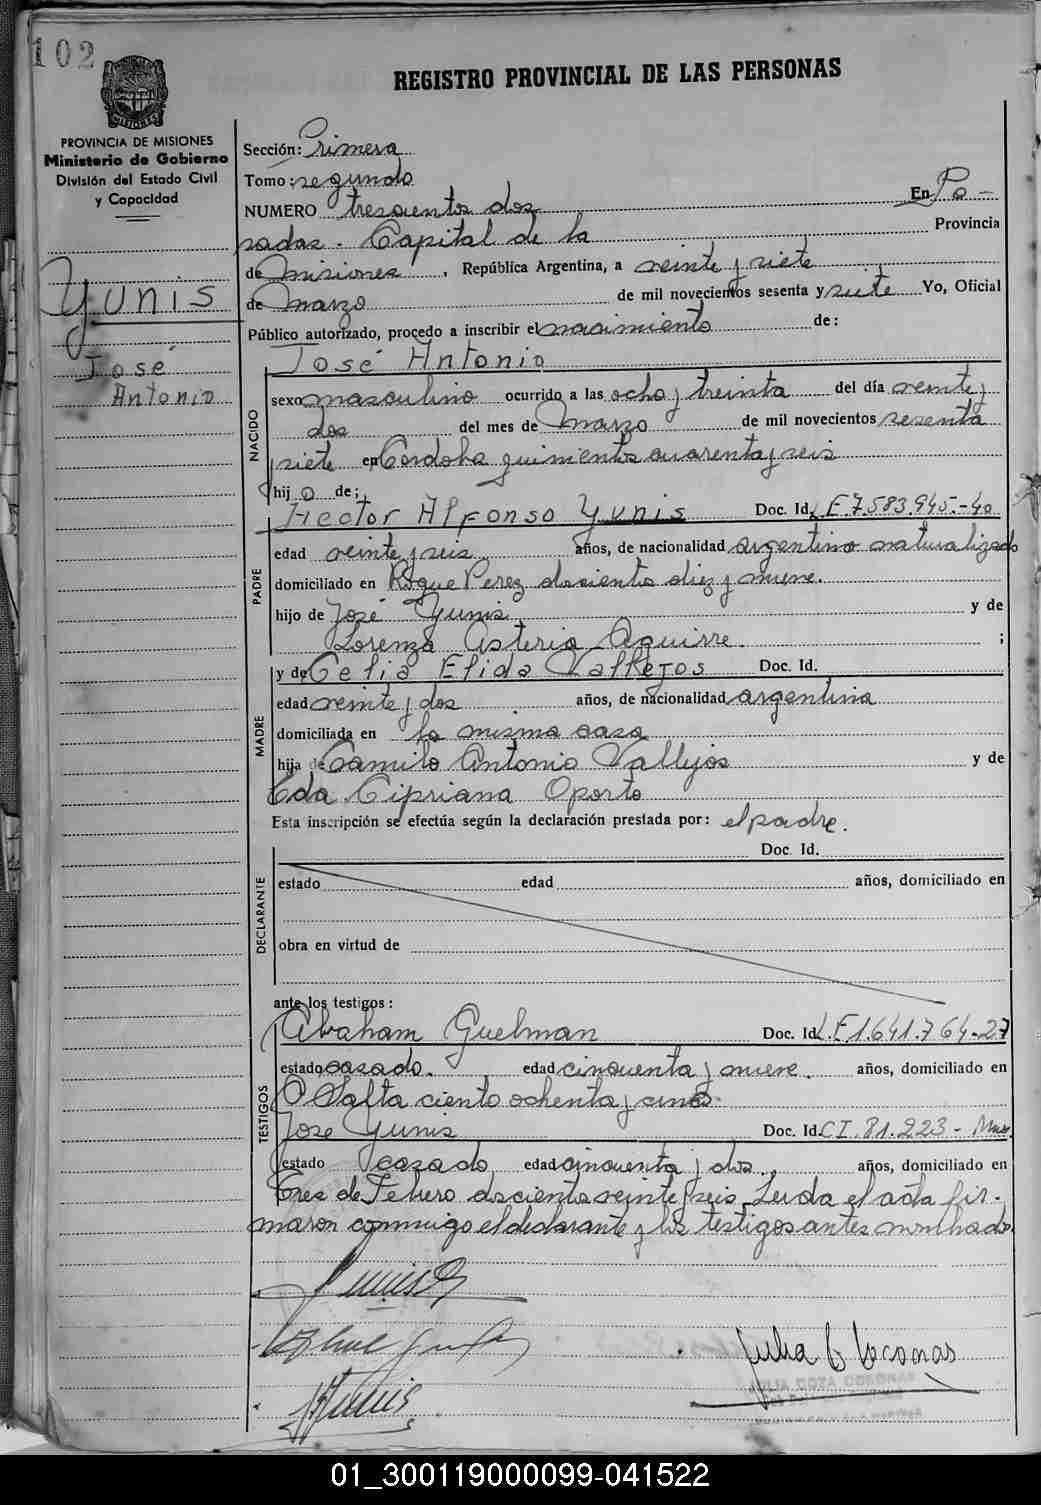 102
REGISTRO PROVINCIAL DE LAS PERSONAS
PROVINCIA DE MISIONES
Ministerio de Gobierno
División del Estado Civil
y Capacidad
Yunis
José
Antonio
Sección: Primera
Tomo: segundo
NUMERO trescientos dos En Po-
sadas. Capital de la Provincia
de Misiones, República Argentina, a veinte y siete
de Marzo de mil novecientos sesenta y siete Yo, Oficial
Público autorizado, procedo a inscribir el nacimiento de:
José Antonio
NACIDO
sexo masculino ocurrido a las ocho y treinta del día veinte y
dos del mes de Marzo de mil novecientos sesenta
y siete en Córdoba quinientos cuarenta y seis
hijo de:
PADRE
Hector Alfonso Yunis Doc. Id. L.E 7.583.945.-40
edad veinte y seis años, de nacionalidad argentino naturalizado
domiciliado en Roque Perez doscientos diez y nueve.
hijo de José Yunis y de
Lorenza Asteria Aguirre. ;
MADRE
y de Celia Elida Vallejos Doc. Id.
edad veinte y dos años, de nacionalidad argentina
domiciliada en la misma casa
hija de Camilo Antonio Vallejos y de
Eda Cipriana Oporto
Esta inscripción se efectúa según la declaración prestada por: el padre.
Doc. Id.
DECLARANTE
estado edad años, domiciliado en
obra en virtud de
ante los testigos:
TESTIGOS
Abraham Guelman Doc. Id. L.E 1.641.764-27
estado casado. edad cincuenta y nueve. años, domiciliado en
Salta ciento ochenta y cinco
José Yunis Doc. Id. C I. 81.223 -
estado casado edad cincuenta y dos., años, domiciliado en
Tres de Febrero doscientos veinte y seis. Leida el acta fir-
maron conmigo el declarante y los testigos antes nombrados
Julia C Coronas
JULIA COZA CORONAS
01_300119000099-041522